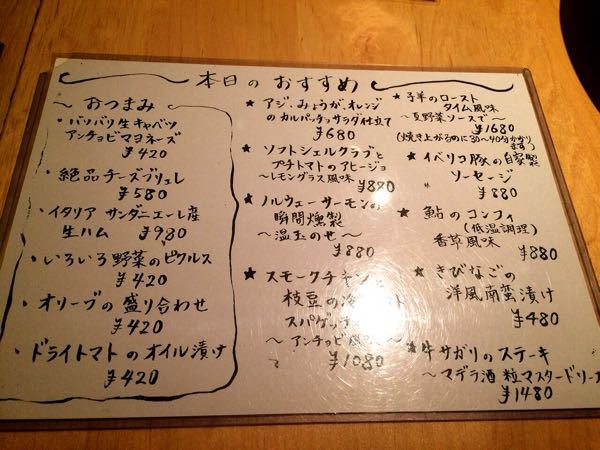 本日のおすすめ
～おつまみ
・バリバリ生キャベツ
アンチョビマヨネーズ
¥420
・絶品チーズブリュレ
¥580
・イタリア サンダニエーレ産
生ハム ¥980
・いろいろ野菜のピクルス
¥420
・オリーブの盛り合わせ
¥420
・ドライトマトのオイル漬け
¥420
★アジ、みょうが、オレンジ
のカルパッチョサラダ仕立て
¥680
★ソフトシェルクラブと
プチトマトのアヒージョ
～レモングラス風味 ¥880
★ノルウェーサーモンの
瞬間燻製
～温玉のせ～
¥880
★スモークチキンと
枝豆の冷
スパゲッティ
～アンチョビ
¥1080
★子羊のロースト
タイム風味
～夏野菜ソースで～
¥1680
(焼き上がるのに30～40分かかり
ます)
★イベリコ豚の自家製
ソーセージ
¥880
★鮎のコンフィ
(低温調理)
香草風味
¥880
★きびなごの
洋風南蛮漬け
¥480
★牛サガリのステーキ
～マデラ酒 粒マスタードソース
¥1480